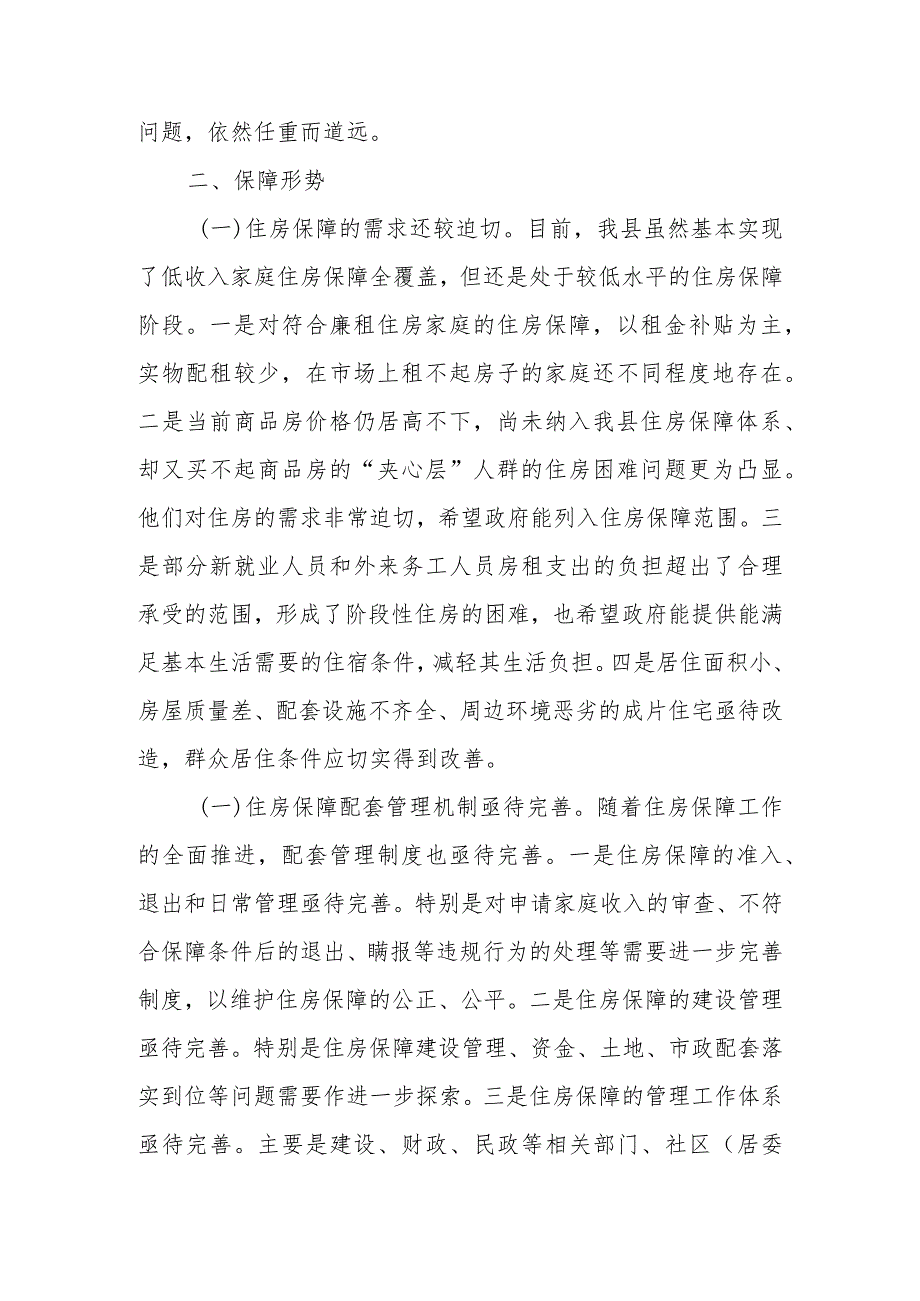 问题，依然任重而道远。
二、保障形势
(一)住房保障的需求还较迫切。目前，我县虽然基本实现
了低收入家庭住房保障全覆盖，但还是处于较低水平的住房保障
阶段。一是对符合廉租住房家庭的住房保障，以租金补贴为主，
实物配租较少，在市场上租不起房子的家庭还不同程度地存在。
二是当前商品房价格仍居高不下，尚未纳入我县住房保障体系、
却又买不起商品房的“夹心层”人群的住房困难问题更为凸显。
他们对住房的需求非常迫切，希望政府能列入住房保障范围。三
是部分新就业人员和外来务工人员房租支出的负担超出了合理
承受的范围，形成了阶段性住房的困难，也希望政府能提供能满
足基本生活需要的住宿条件，减轻其生活负担。四是居住面积小、
房屋质量差、配套设施不齐全、周边环境恶劣的成片住宅亟待改
造，群众居住条件应切实得到改善。
(一)住房保障配套管理机制亟待完善。随着住房保障工作
的全面推进，配套管理制度也亟待完善。一是住房保障的准入、
退出和日常管理亟待完善。特别是对申请家庭收入的审查、不符
合保障条件后的退出、瞒报等违规行为的处理等需要进一步完善
制度，以维护住房保障的公正、公平。二是住房保障的建设管理
亟待完善。特别是住房保障建设管理、资金、土地、市政配套落
实到位等问题需要作进一步探索。三是住房保障的管理工作体系
亟待完善。主要是建设、财政、民政等相关部门、社区（居委